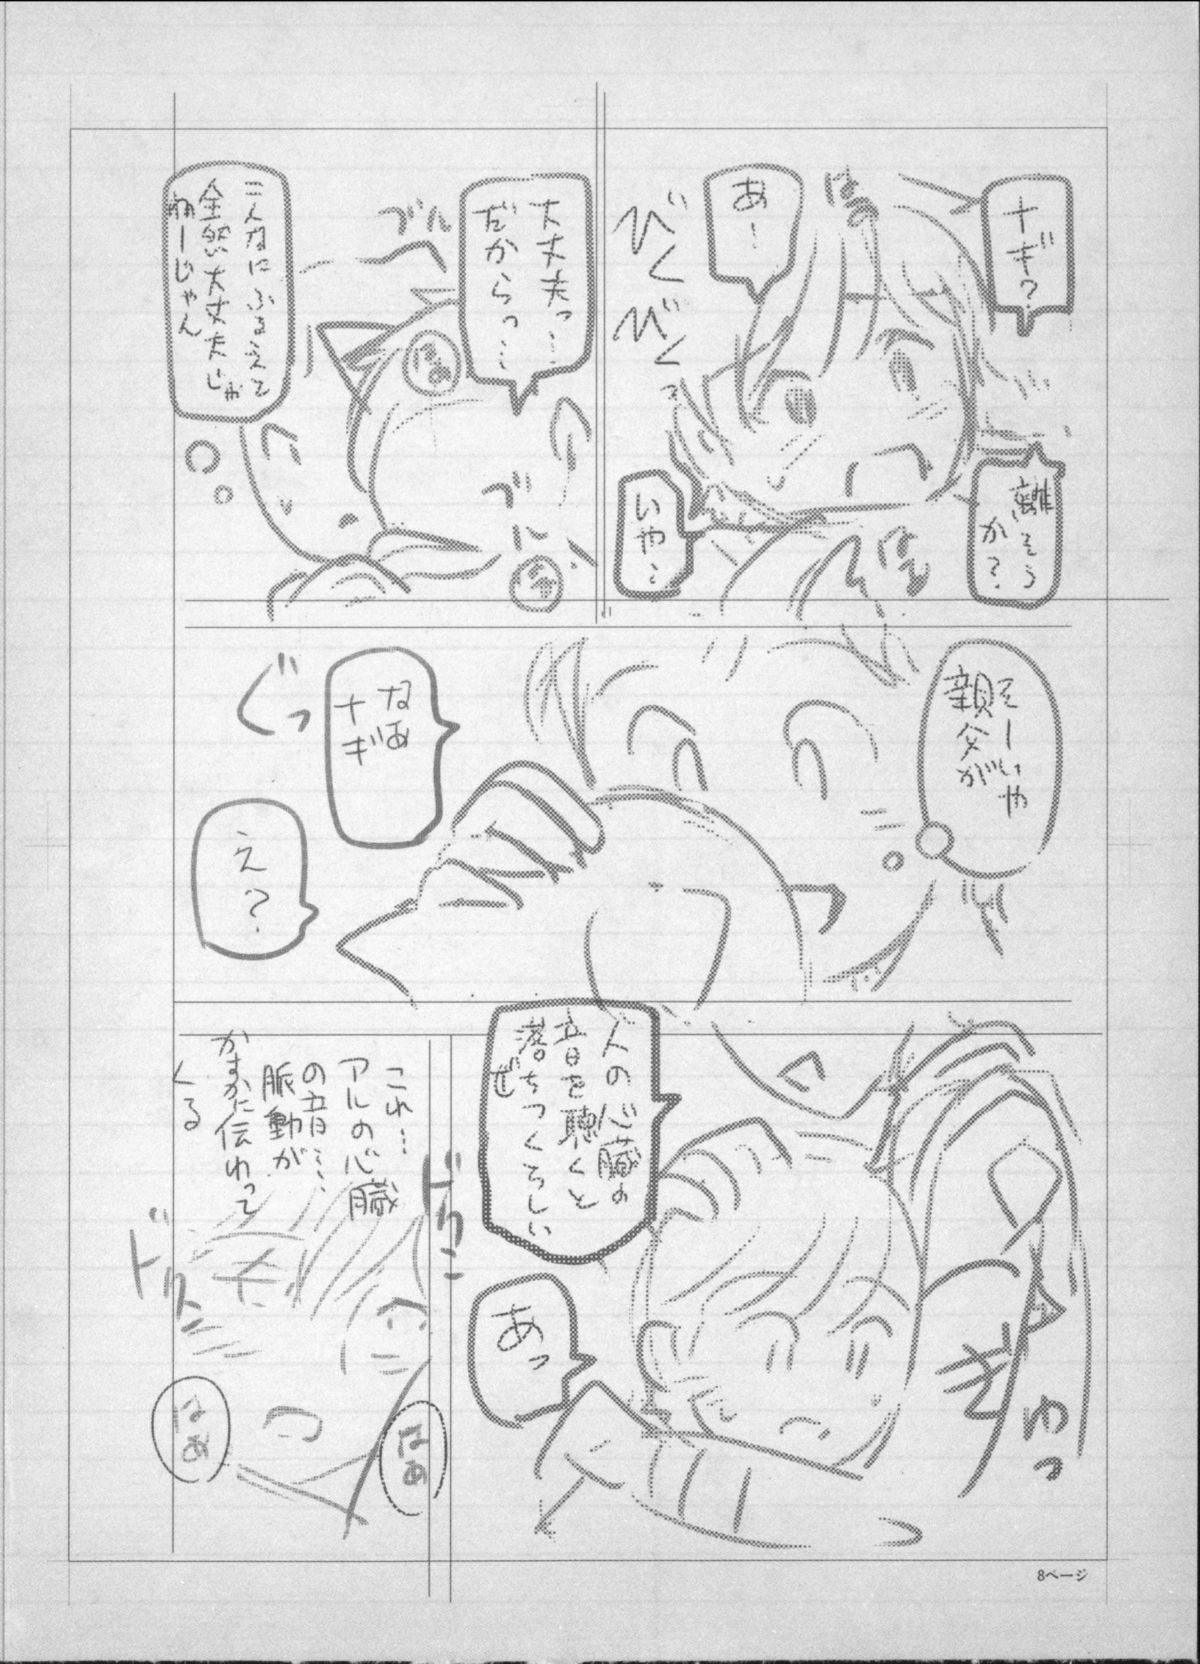 ナギ?
はぁ
あ…
びく
びくっ
離そう
か?
いや…
はぁ
大丈夫っ…
だからっ…
ブル
はぁ
ブル
はぁ
こんなにふるえて
全然大丈夫じゃ
ねーじゃん
そーいや
親父が
なぁ
ナギ
ぐっ
え?
人の心臓の
音を聴くと
落ちつくらしい
ぜ
ぎゅっ
あっ
これ…
アルの心臓
の音…
脈動が
かすかに伝わって
くる
ドクン
ドクン
はぁ
はぁ
8ページ